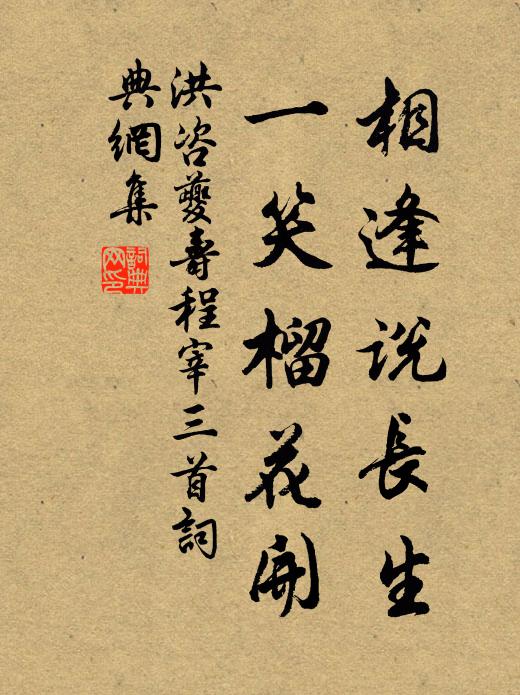 相逢說長生
一笑榴花開
洪咨夔壽程宰三首詞
典網集
詞典
网印